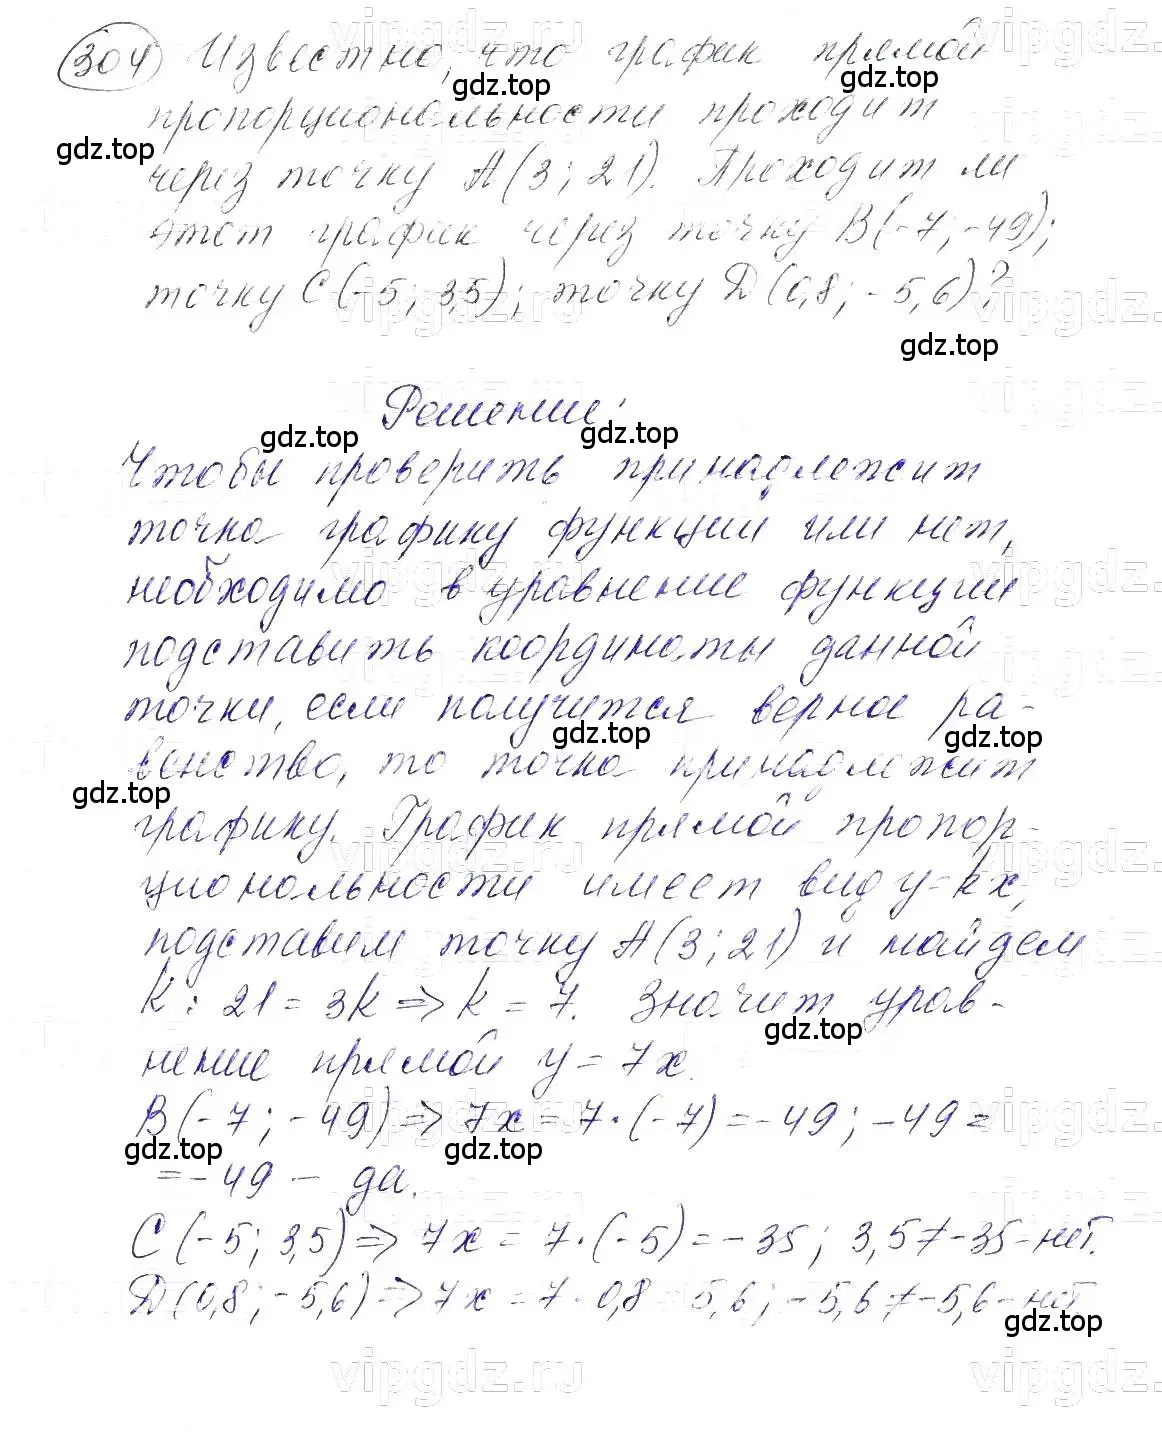 304 Известно, что график прямой
пропорциональности проходит
через точку A(3; 21). Проходит ли
этот график через точку B(-7; -49);
точку C(-5; 3,5); точку D(0,8; -5,6)?
Решение:
Чтобы проверить принадлежит
точка графику функции или нет,
необходимо в уравнение функции
подставить координаты данной
точки, если получится верное ра-
венство, то точка принадлежит
графику. График прямой пропор-
циональности имеет вид y=kx,
подставим точку A(3; 21) и найдем
k: 21 = 3k => k = 7. Значит урав-
нение прямой y = 7x.
B(-7; -49) => 7x = 7·(-7) = -49; -49 =
= -49 - да.
C(-5; 3,5) => 7x = 7·(-5) = -35; 3,5 ≠ -35 - нет.
D(0,8; -5,6) => 7x = 7·0,8 = 5,6; -5,6 ≠ -5,6 - нет.
gdz.top
gdz.top
gdz.top
gdz.top
gdz.top
gdz.top
gdz.top
gdz.top
gdz.top
gdz.top
gdz.top
gdz.top
gdz.top
vipgdz.ru